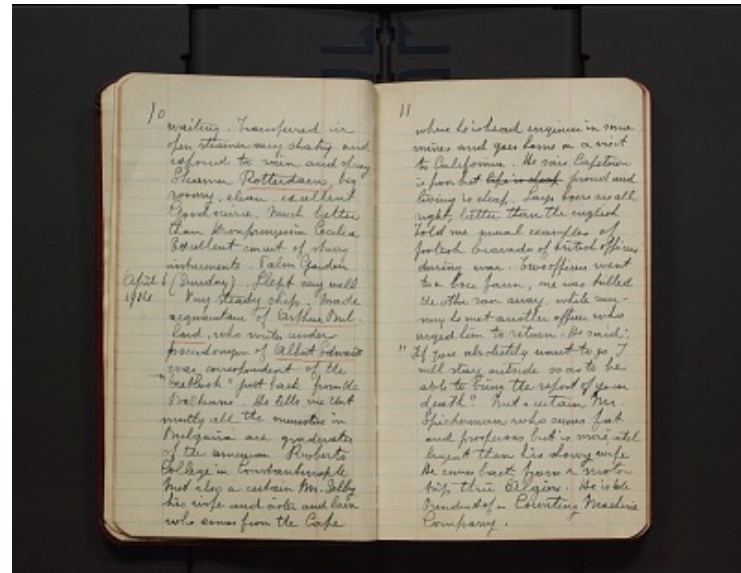 10
waiting. Transferred in
open steamer very shaky and
exposed to rain and spray
Steamer Rotterdam, big
roomy, clean. excellent
Good service. Much better
than Kronprinzessin Cecilie
Excellent concert of string
instruments. Palm Garden.
April 5 (Sunday). Slept very well
1914 Very steady ship. Made
acquaintance of Arthur Bul-
lard, who writes under
pseudonym of Albert Edwards
was correspondent of the
"Outlook" just back from the
Balkans. He tells me that
nearly all the ministers in
Bulgaria are graduates
of the American Roberts
College in Constantinople
Met also a certain Mr.
his wife and sister and
who comes from the Cape
11
where he is head engineer in some
mines and goes home on a visit
to California. He says Capetown
is poor but life is cheap proud and
living is cheap. Says boers are all
right, better than the english
Told me several examples of
foolish bravado of british officers
during war. Two officers went
to a boer farm, one was killed
the other ran away, while run-
ning he met another officer who
urged him to return. He said:
"If you absolutely want to go, I
will stay outside so as to be
able to bring the report of your
death". Met a certain Mr.
Spickerman who seems fat
and prosperous but is more intel
ligent than his showy wife
He comes back from a motor
trip thru Algiers. He is the
President of a Counting Machine
Company.